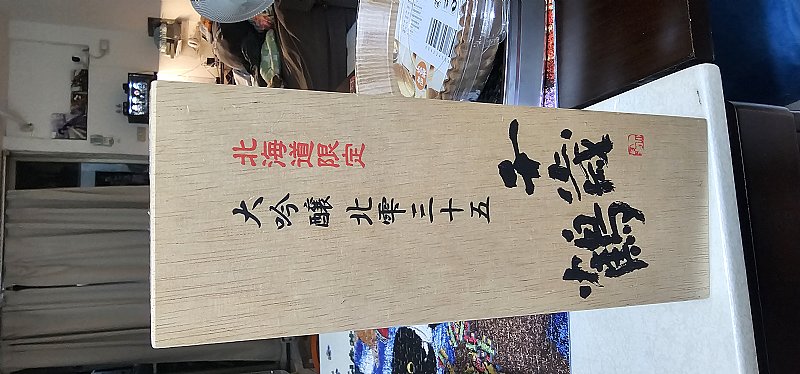 北海道限定
大吟醸 北雫三十五
千歳鶴